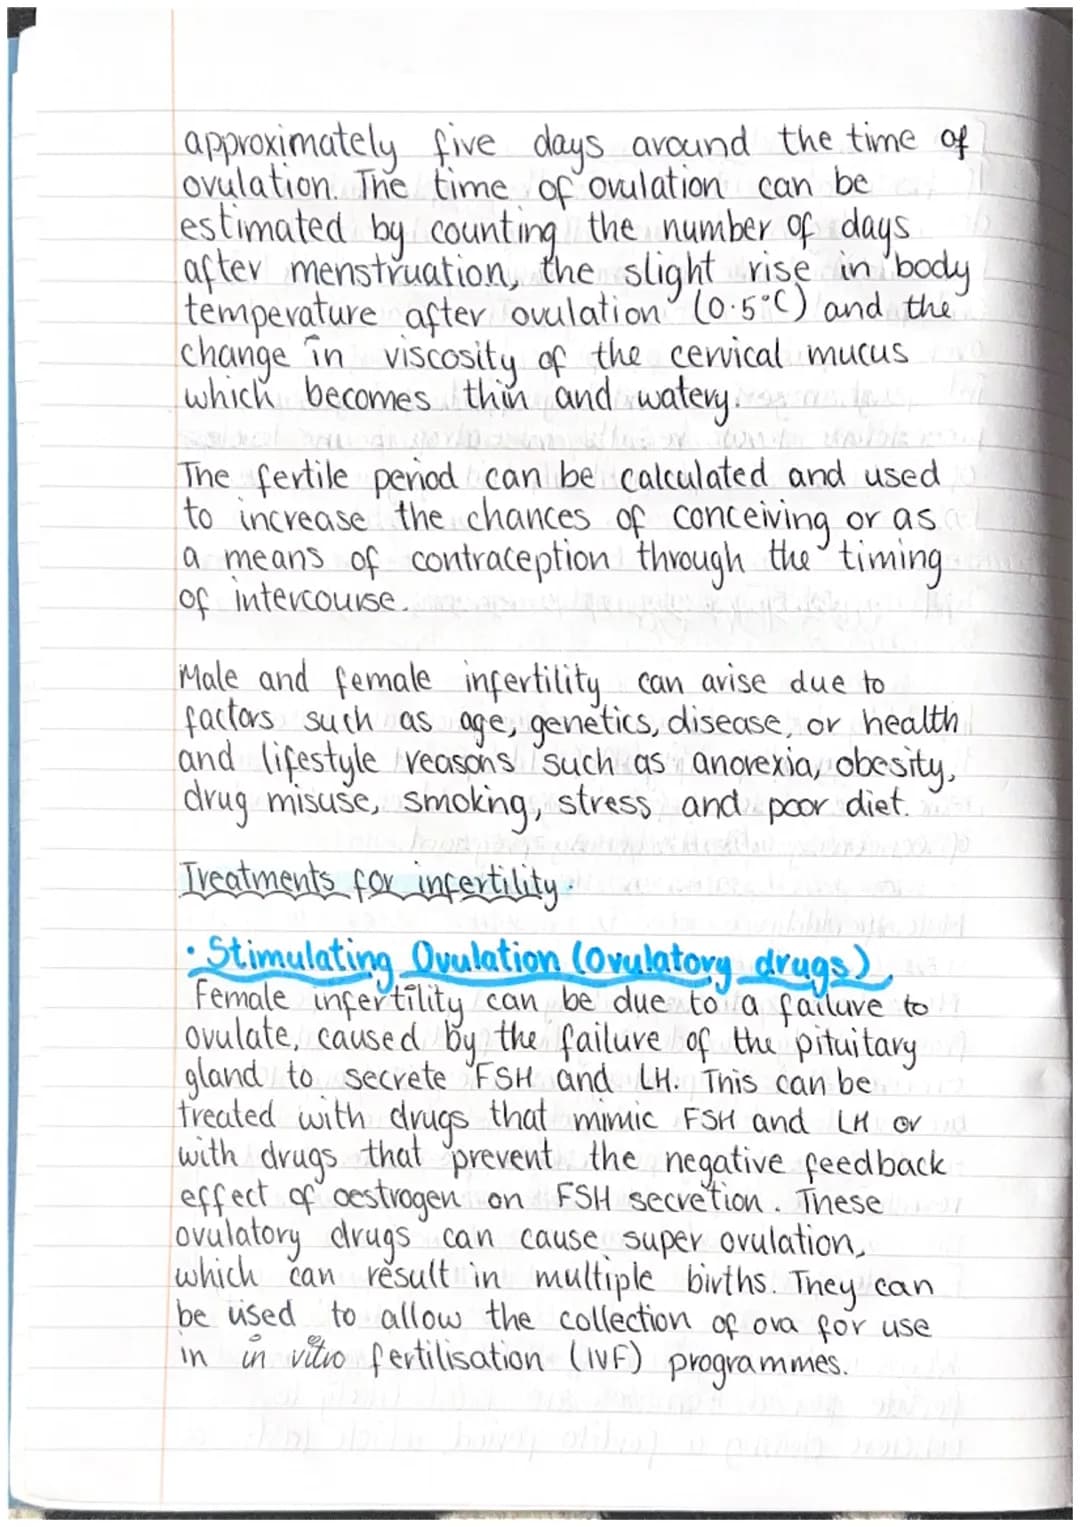 approximately five days around the time of
ovulation. The time of ovulation can be
estimated by counting the number of days
after menstruation, the slight rise in body
temperature after ovulation (0.5°C) and the
change in viscosity of the cervical mucus
which becomes thin and watery.
The fertile period can be calculated and used
to increase the chances of conceiving or as
a means of contraception through the timing
of intercourse.
Male and female infertility can arise due to
factors such as age, genetics, disease, or health
and lifestyle reasons such as anorexia, obesity,
drug misuse, smoking, stress and poor diet.
Treatments for infertility.
• Stimulating Ovulation (Ovulatory drugs).
Female infertility can be due to a failure to
ovulate, caused by the failure of the pituitary
gland to secrete FSH and LH. This can be
treated with drugs that mimic FSH and LH or
with drugs that prevent the negative feedback
effect of oestrogen on FSH secretion. These
ovulatory drugs can cause super ovulation,
which can result in multiple births. They can
be used to allow the collection of ova for use
in in vitro fertilisation (IVF) programmes.